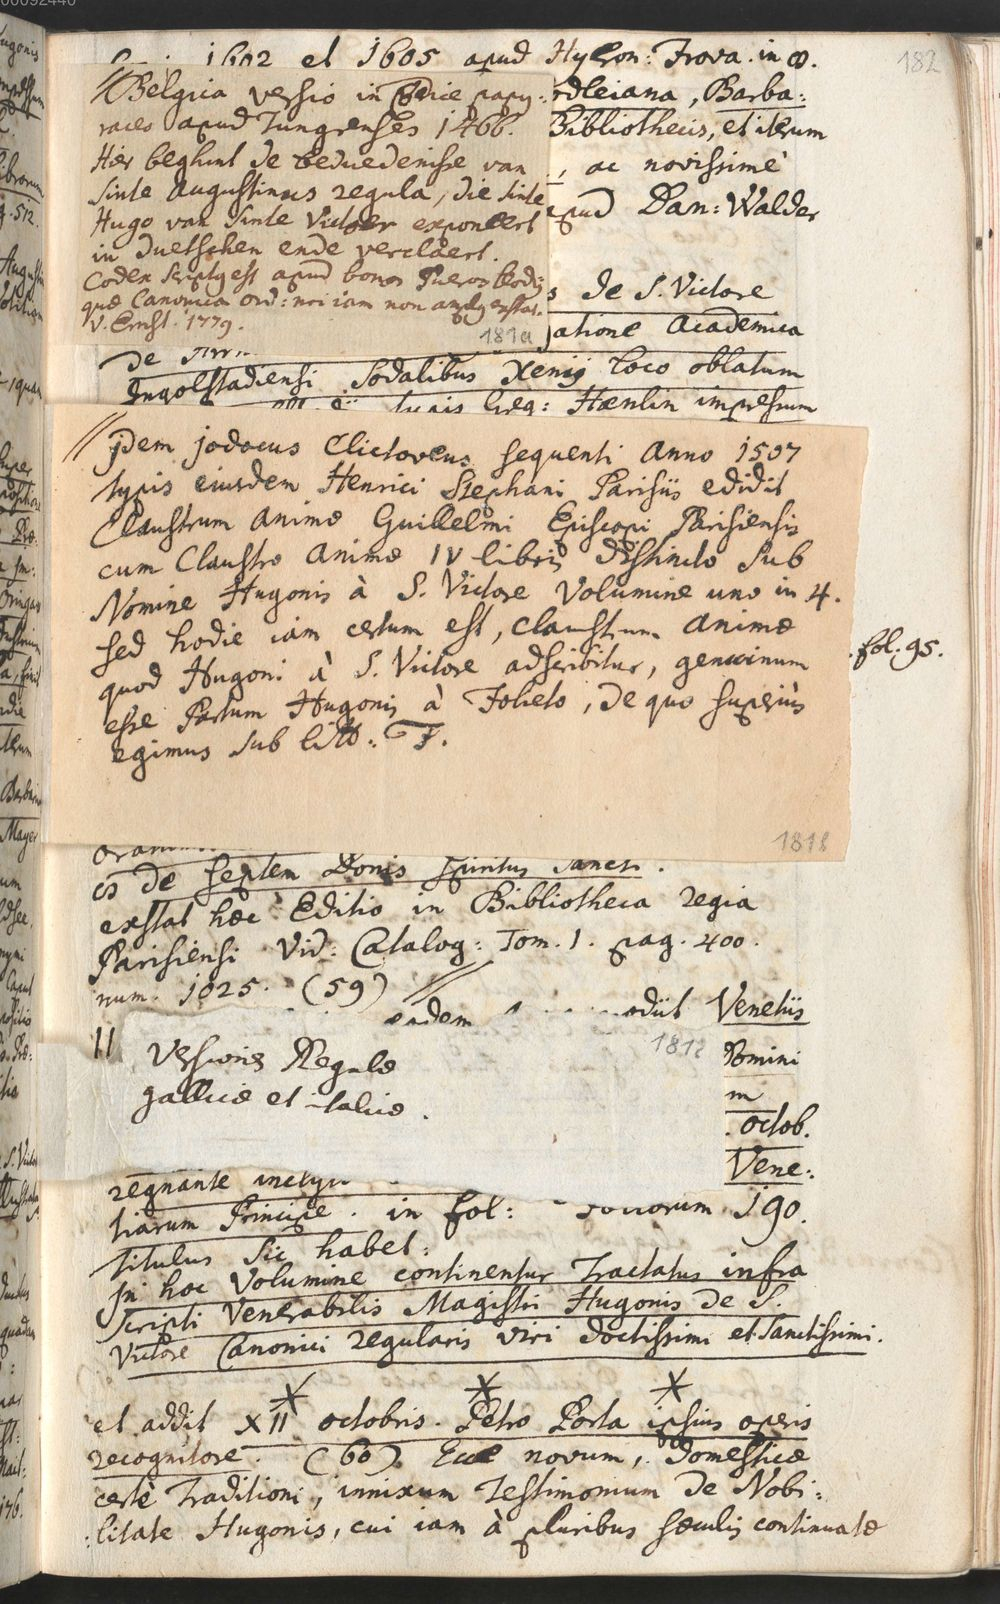 00092440
182
1602 et 1605 apud Hyeron: Trova. in 8.
// Belgica versio in Codice papy:
raceo apud Tungrenses 1466.
Hier beghint de beduedenisse van
sinte Augustinus regula, die sinte
Hugo van Sinte Victoer exponeert
in duetschen ende verclaert.
Codex scriptus est apud bonos Pueros Leodij
quæ Canonica ord: nri iam non amplius exstat.
V. Ernst. 1779.
181a
odleiana, Barba:
Bibliothecis, et iterum
, ac novissime
apud Dan: Walder
s de S. Victore
gatione Academica
de
Ingolstadiensi Sodalibus Xenij loco oblatum
typis Greg: Hænlin impressum
// Idem jodocus Clictoveus sequenti Anno 1507
typis eiusdem Henrici Stephani Parisiis edidit
Claustrum Animæ Guillelmi Episcopi Parisiensis
cum Claustro Animæ IV libris distincto sub
Nomine Hugonis à S. Victore Volumine uno in 4.
sed hodie iam certum est, Claustrum Animæ
quod Hugoni à S. Victore adscribitur, genuinum
esse Partum Hugonis à Folieto, de quo superius
egimus sub litt: F.
fol. 95.
181b
is de septem Donis spiritus sancti.
exstat hæc Editio in Bibliotheca regia
Parisiensi Vid: Catalog: Tom. 1. pag. 400.
num. 1025. (59) //
eadem odiit Venetiis
11
Versiones Regulæ
gallicæ et italicæ.
181c
Nomini
m
octob.
Vene:
regnante inclyt
tiarum Principe. in fol: foliorum 190.
titulus sic habet:
In hoc Volumine continentur Tractatus infra
scripti Venerabilis Magistri Hugonis de S.
Victore Canonici regularis viri doctissimi et Sanctissimi.
* * *
et addit XII octobris. Petro Porta ipsius operis
recognitore. (60) Ecce novum, domesticæ
certè traditioni, innixum Testimonium de Nobi:
litate Hugonis, cui iam à pluribus sæculis continuatæ